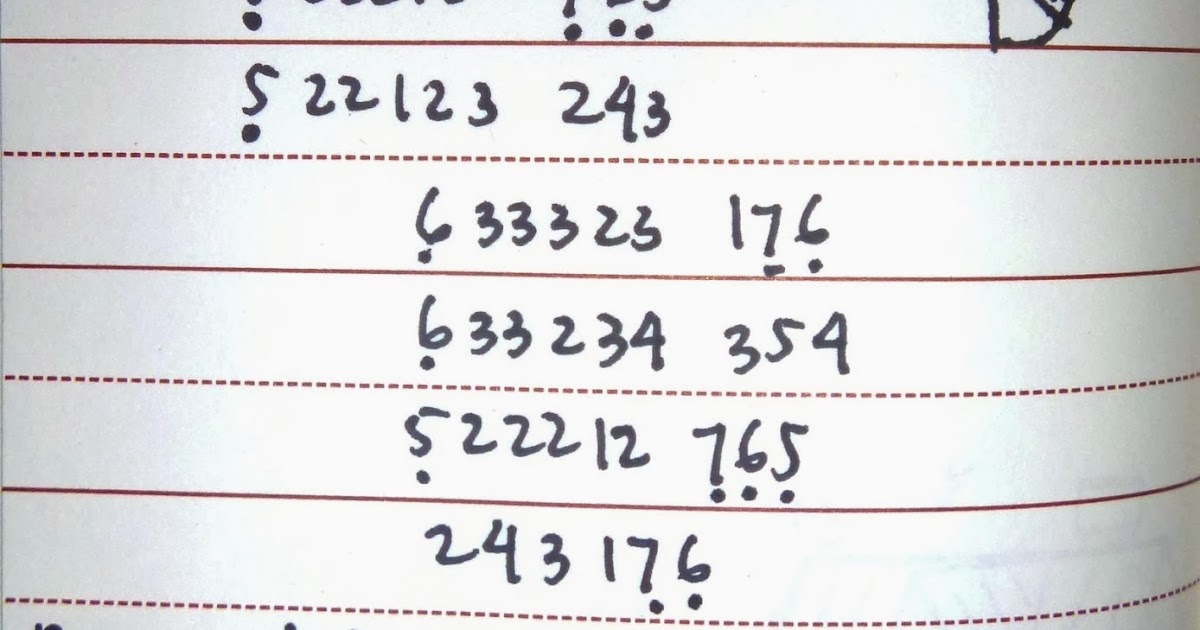 5̣ 22123 243
6̣ 33323 17̣6̣
6̣ 33234 354
5̣ 22212 7̣6̣5̣
243 17̣6̣